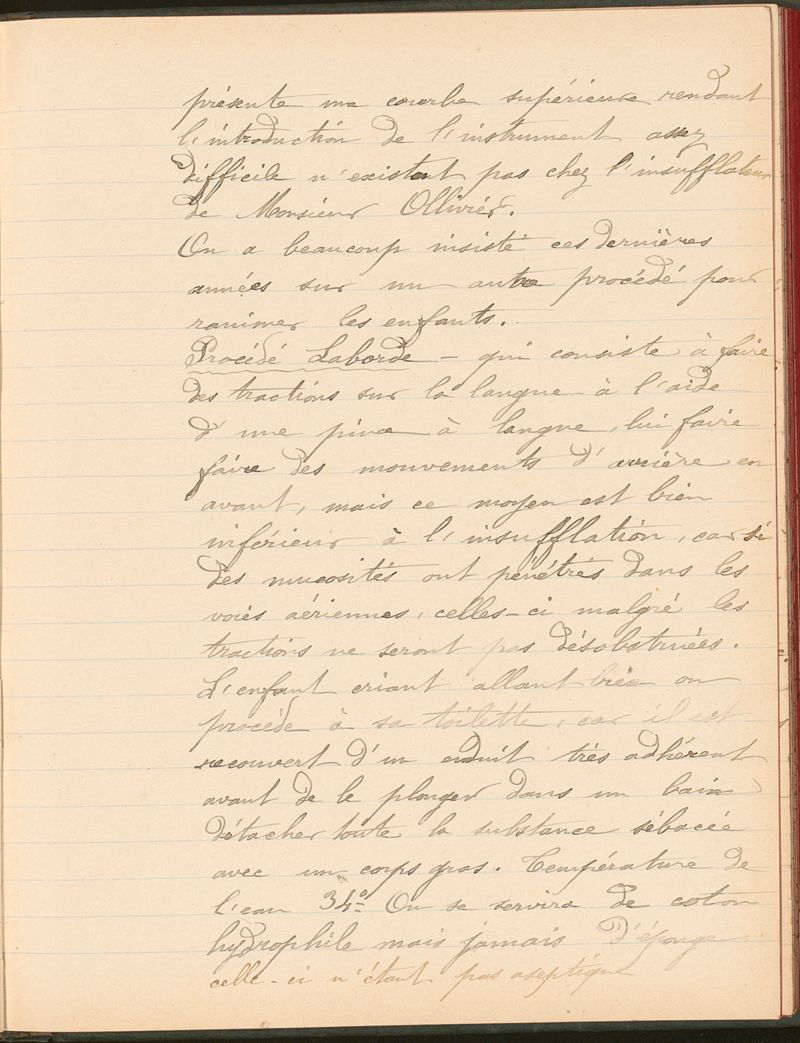 présente une courbe supérieure rendant
l'introduction de l'instrument assez
difficile n'existant pas chez l'insufflateur
de Monsieur Ollivier.
On a beaucoup insisté ces dernières
années sur un autre procédé pour
ranimer les enfants.
Procédé Laborde - qui consiste à faire
des tractions sur la langue à l'aide
d'une pince à langue, lui faire
faire des mouvements d'arrière en
avant, mais ce moyen est bien
inférieur à l'insufflation, car si
des mucosités ont pénétrés dans les
voies aériennes, celles-ci malgré les
tractions ne seront pas désobstruées.
L'enfant criant allant bien on
procède à sa toilette, car il est
recouvert d'un enduit très adhérent
avant de le plonger dans un bain
détacher toute la substance sébacée
avec un corps gras. Température de
l'eau 34° On se servira de coton
hydrophile mais jamais d'éponge
celle-ci n'étant pas aseptique